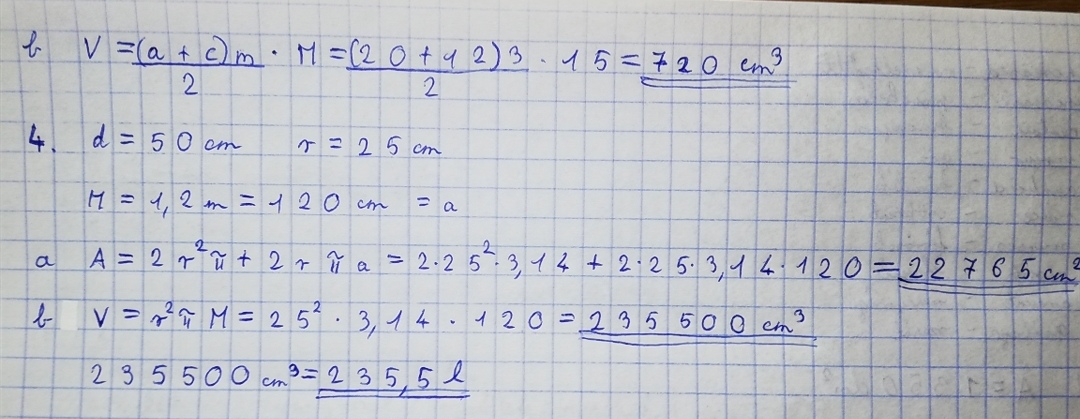 b V = (a + c)m / 2 · M = (20 + 12)3 / 2 · 15 = 720 cm³
4. d = 50 cm r = 25 cm
M = 1,2 m = 120 cm = a
a A = 2 r²π + 2 r π a = 2·25²·3,14 + 2·25·3,14·120 = 22765 cm²
b V = r²π M = 25² · 3,14 · 120 = 235 500 cm³
235500 cm³ = 235,5 l